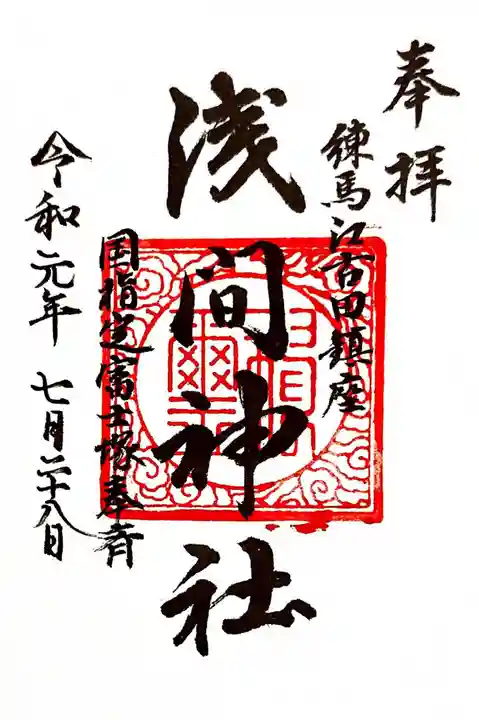 奉拝
練馬江古田鎮座
浅間神社
国指定富士塚奉斉
令和元年七月二十八日